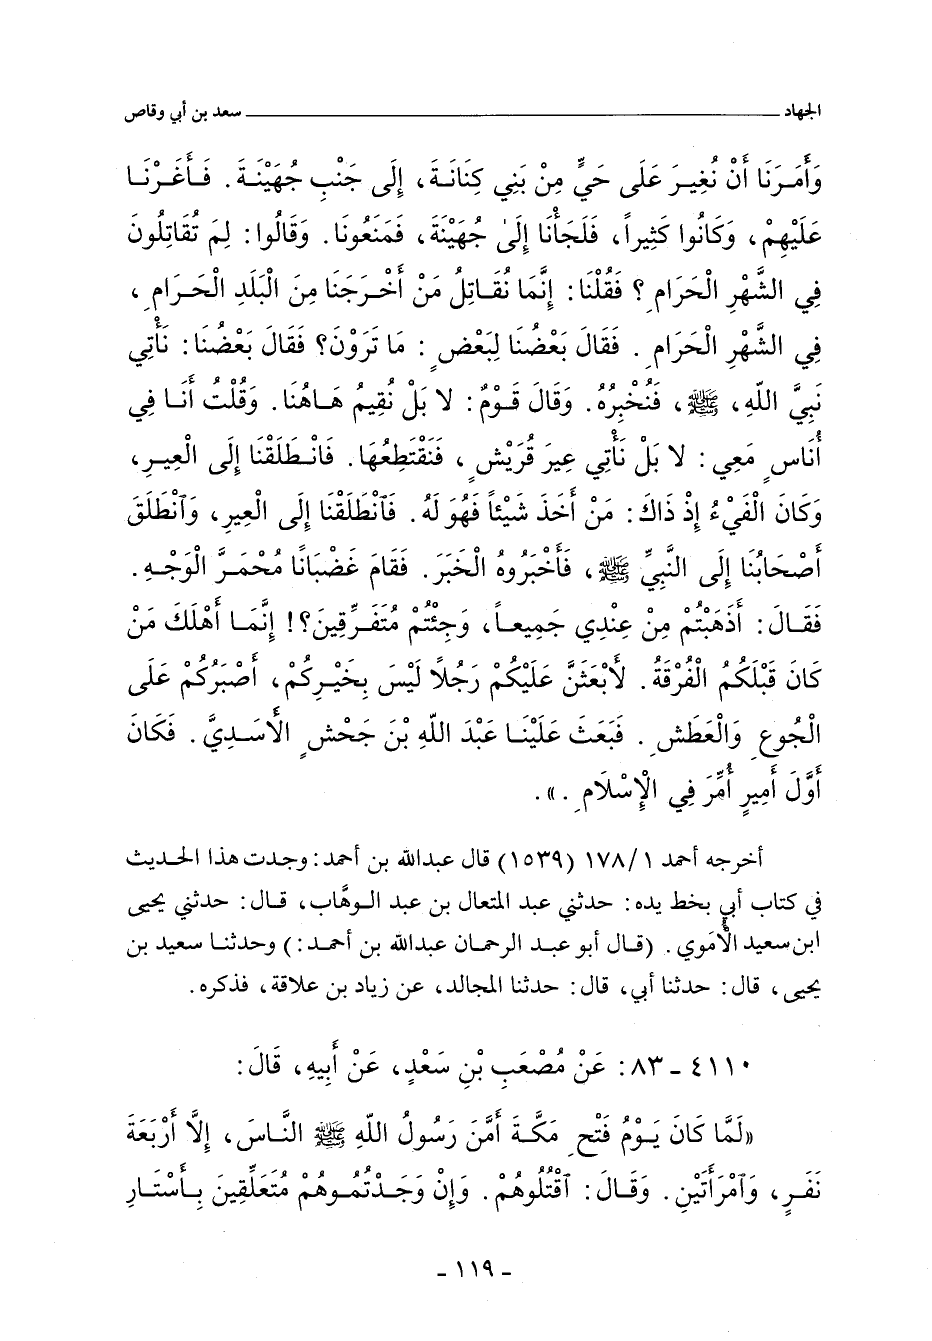 الجهاد سعد بن أبي وقاص
وَأَمَرَنَا أَنْ نُغِيرَ عَلَى حَيٍّ مِنْ بَنِي كِنَانَةَ، إِلَى جَنْبِ جُهَيْنَةَ. فَأَغَرْنَا
عَلَيْهِمْ، وَكَانُوا كَثِيراً، فَلَجَأْنَا إِلَىٰ جُهَيْنَةَ، فَمَنَعُونَا. وَقَالُوا: لِمَ تُقَاتِلُونَ
فِي الشَّهْرِ الْحَرَامِ؟ فَقُلْنَا: إِنَّمَا نُقَاتِلُ مَنْ أَخْرَجَنَا مِنَ الْبَلَدِ الْحَرَامِ،
فِي الشَّهْرِ الْحَرَامِ. فَقَالَ بَعْضُنَا لِبَعْضٍ: مَا تَرَوْنَ؟ فَقَالَ بَعْضُنَا: نَأْتِي
نَبِيَّ اللّهِ، ﷺ، فَنُخْبِرُهُ. وَقَالَ قَوْمٌ: لا بَلْ نُقِيمُ هَاهُنَا. وَقُلْتُ أَنَا فِي
أُنَاسٍ مَعِي: لا بَلْ نَأْتِي عِيرَ قُرَيْشٍ، فَنَقْتَطِعُهَا. فَانْطَلَقْنَا إِلَى الْعِيرِ،
وَكَانَ الْفَيْءُ إِذْ ذَاكَ: مَنْ أَخَذَ شَيْئاً فَهُوَ لَهُ. فَآنْطَلَقْنَا إِلَى الْعِيرِ، وَآنْطَلَقَ
أَصْحَابُنَا إِلَى النَّبِيِّ ﷺ، فَأَخْبَرُوهُ الْخَبَرَ. فَقَامَ غَضْبَانًا مُحْمَرَّ الْوَجْهِ.
فَقَالَ: أَذَهَبْتُمْ مِنْ عِنْدِي جَمِيعاً، وَجِئْتُمْ مُتَفَرِّقِينَ؟! إِنَّمَا أَهْلَكَ مَنْ
كَانَ قَبْلَكُمُ الْفُرْقَةُ. لأَبْعَثَنَّ عَلَيْكُمْ رَجُلاً لَيْسَ بِخَيْرِكُمْ، أَصْبَرُكُمْ عَلَى
الْجُوعِ وَالْعَطَشِ. فَبَعَثَ عَلَيْنَا عَبْدَ اللّهِ بْنَ جَحْشٍ الأَسَدِيَّ. فَكَانَ
أَوَّلَ أَمِيرٍ أُمِّرَ فِي الْإِسْلَامِ.».
أخرجه أحمد ١/١٧٨ (١٥٣٩) قال عبدالله بن أحمد: وجدت هذا الحديث
في كتاب أبي بخط يده: حدثني عبد المتعال بن عبد الوهَّاب، قال: حدثني يحيى
ابن سعيد الأُمَوي. (قال أبو عبد الرحمان عبدالله بن أحمد:) وحدثنا سعيد بن
يحيى، قال: حدثنا أبي، قال: حدثنا المجالد، عن زياد بن علاقة، فذكره.
٤١١٠ - ٨٣: عَنْ مُصْعَبِ بْنِ سَعْدٍ، عَنْ أَبِيهِ، قَالَ:
«لَمَّا كَانَ يَوْمُ فَتْحِ مَكَّةَ أَمَّنَ رَسُولُ اللّهِ ﷺ النَّاسَ، إِلَّا أَرْبَعَةَ
نَفَرٍ، وَآمْرَأَتَيْنِ. وَقَالَ: آقْتُلُوهُمْ. وَإِنْ وَجَدْتُمُوهُمْ مُتَعَلِّقِينَ بِأَسْتَارِ
- ١١٩ -